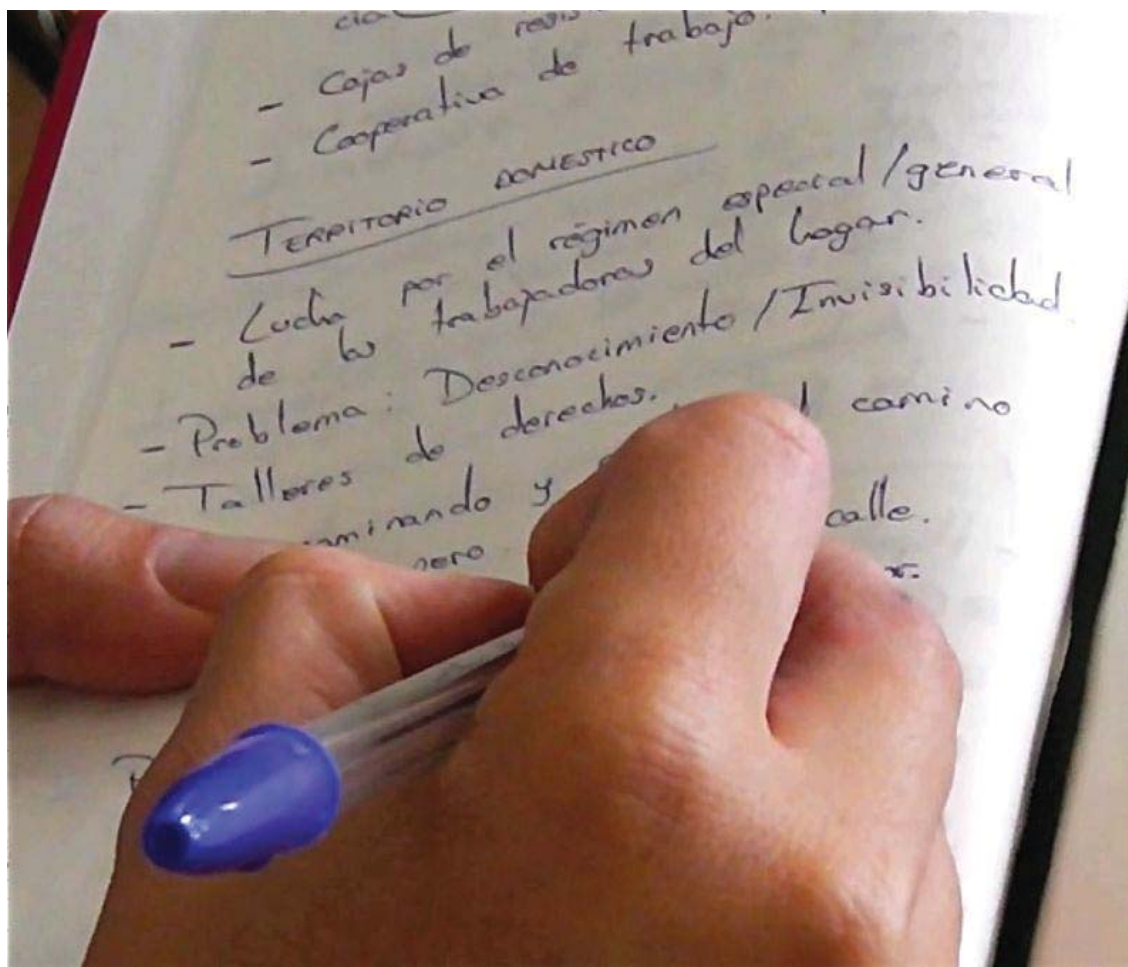 - Cajas de
- Cooperativa de trabajo.
TERRITORIO DOMESTICO
- Lucha por el régimen especial/general
de las trabajadoras del hogar.
- Problema: Desconocimiento/Invisibilidad
- Talleres de derechos. camino
y calle.